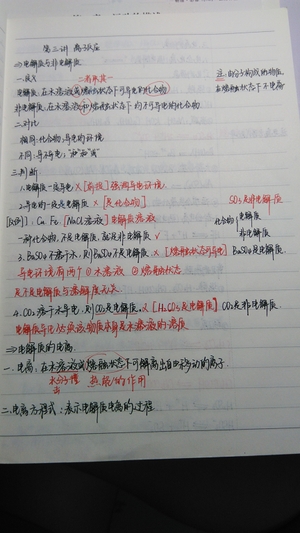 第二讲 离子反应
⇒电解质与非电解质
一.定义 二者取其一
注:由分子构成的物质
电解质:在水溶液或熔融状态下可导电的化合物
在熔融状态下不电离
非电解质:在水溶液和熔融状态下均不可导电的化合物
二.对比
相同:化合物,导电的环境
不同:导不导电;"和""或"
三.判断
1.电解质一定导电 × [前提]强调导电环境
2.导电的一定是电解质 × [是化合物]
SO₃是非电解质
[反例]: Cu Fe [NaCl溶液] 电解质溶液
化合物 电解质
非电解质
一种化合物,不是电解质,就是非电解质 √
3.BaSO₄不溶于水,则BaSO₄不是电解质 × [熔融状态可导电] BaSO₄是电解质
导电环境有两个 ①水溶液 ②熔融状态
是不是电解质与溶解度无关
4.CO₂溶于水导电,则CO₂是电解质 × [H₂CO₃是电解质] CO₂是非电解质
电解质导电必须该物质本身是水溶液的溶质
⇒电解质的电离
一.电离:在水溶液或熔融状态下可解离出自由移动的离子
水分子 热能的作用
二.电离方程式:表示电解质电离的过程